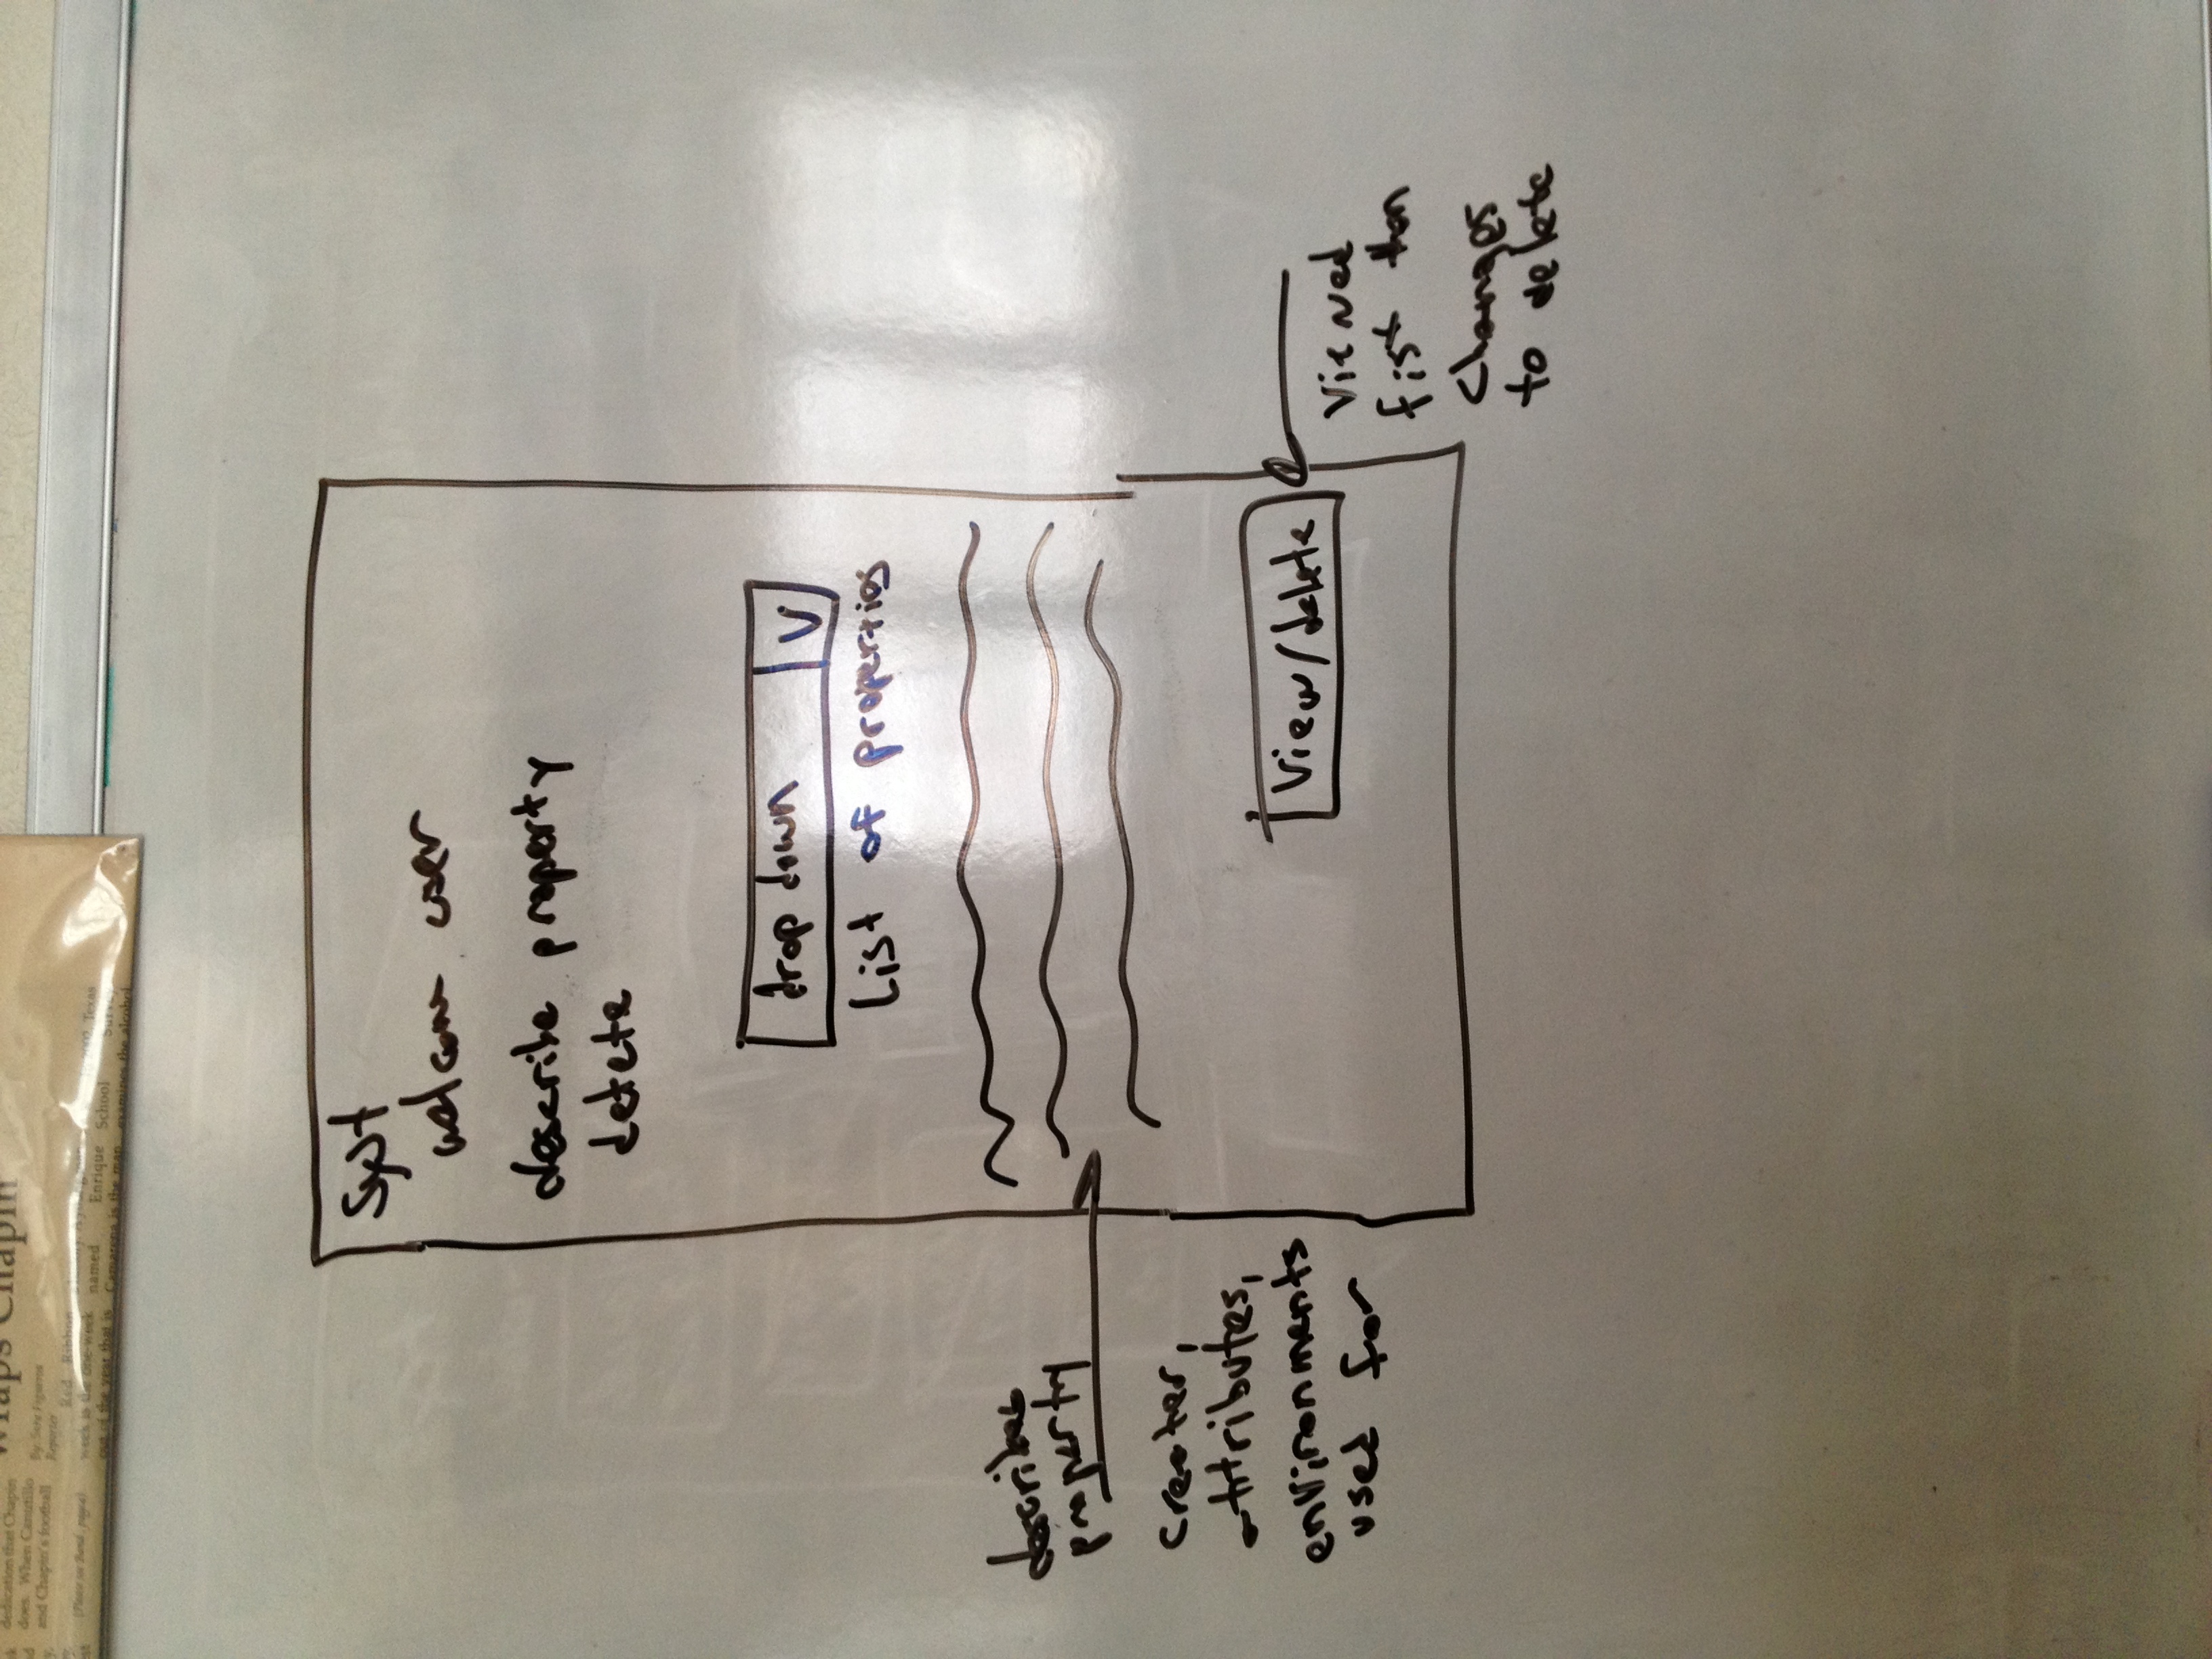 Wraps Chapin
dedication that Chapin
does. When Canutillo
and Chapin's football
(Please see Band , page 4)
By: Sare Figueroa
Reporter
Red Ribbon
week is the one-week
out of the year that is
named Enrique
Camarena is the man
2002, Texas
School Survey
examines the alcohol
Syst
welcom user
describe property
detete
drop down V
List of properties
describes
property
creater,
attributes,
environments
used for
View/delete
Viewed
fist then
Changes
to delete